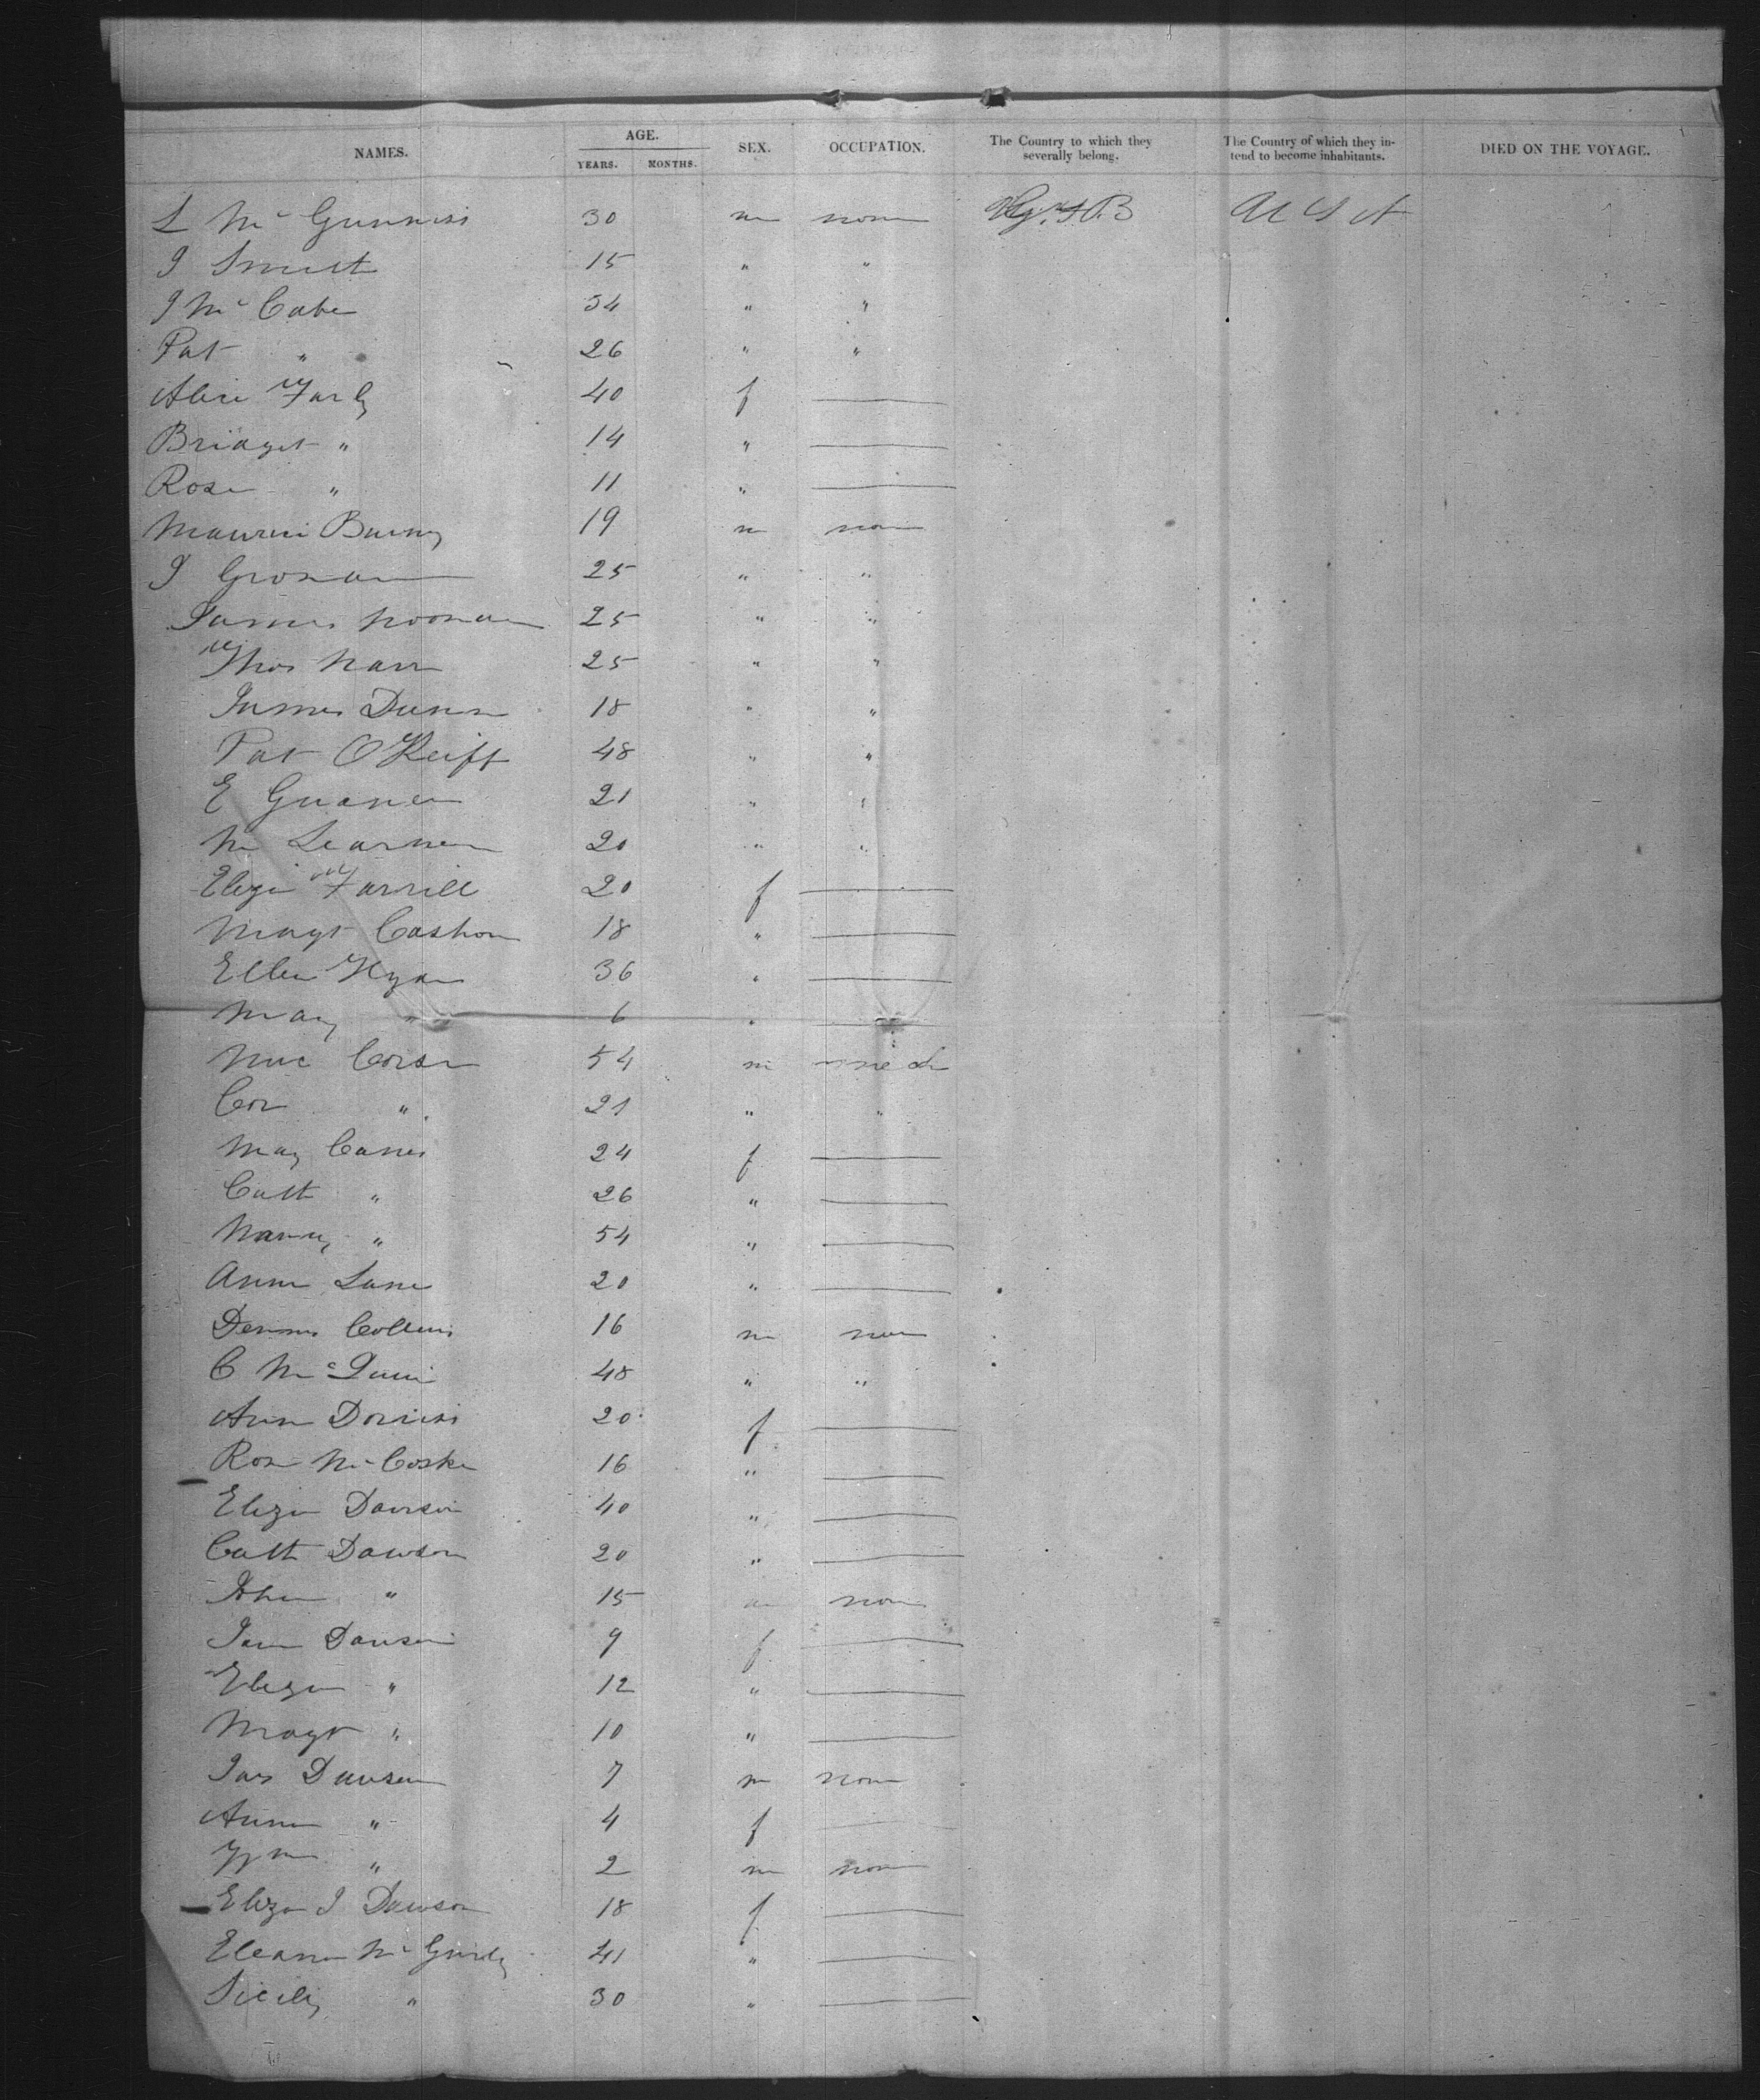 NAMES. AGE. YEARS. MONTHS. SEX. OCCUPATION. The Country to which they severally belong. The Country of which they intend to become inhabitants. DIED ON THE VOYAGE.
L Mc 30 m none U S A
J 15 " "
J Mc Cabe 34 " "
Pat " 26 " "
Alice Farly 40 f
Bridget " 14 "
Rose " 11 "
Maurice 19 m none
J 25 " "
James Noonan 25 " "
Thos 25 " "
James Dunn 18 " "
Pat O Keiff 48 " "
E 21 " "
M 20 " "
Eliza Farrill 20 f
Magt Cashon 18 "
Ellen 36 "
Mary " 6 "
54 m
Cor " 21 " "
Mary 24 f
Cath " 26 "
Nancy " 54 "
Anne Lane 20 "
Dennis Collins 16 m none
C Mc 48 " "
Ann 20 f
Rose Mc Cosker 16 "
Eliza Dawson 40 "
Cath Dawson 20 "
John " 15 m none
Jane Dawson 9 f
Eliza " 12 "
Magt " 10 "
Jas Dawson 7 m none
Anne " 4 f
Wm " 2 m none
Eliza J Dawson 18 f
Eleanor Mc 41 "
Sicily " 30 "